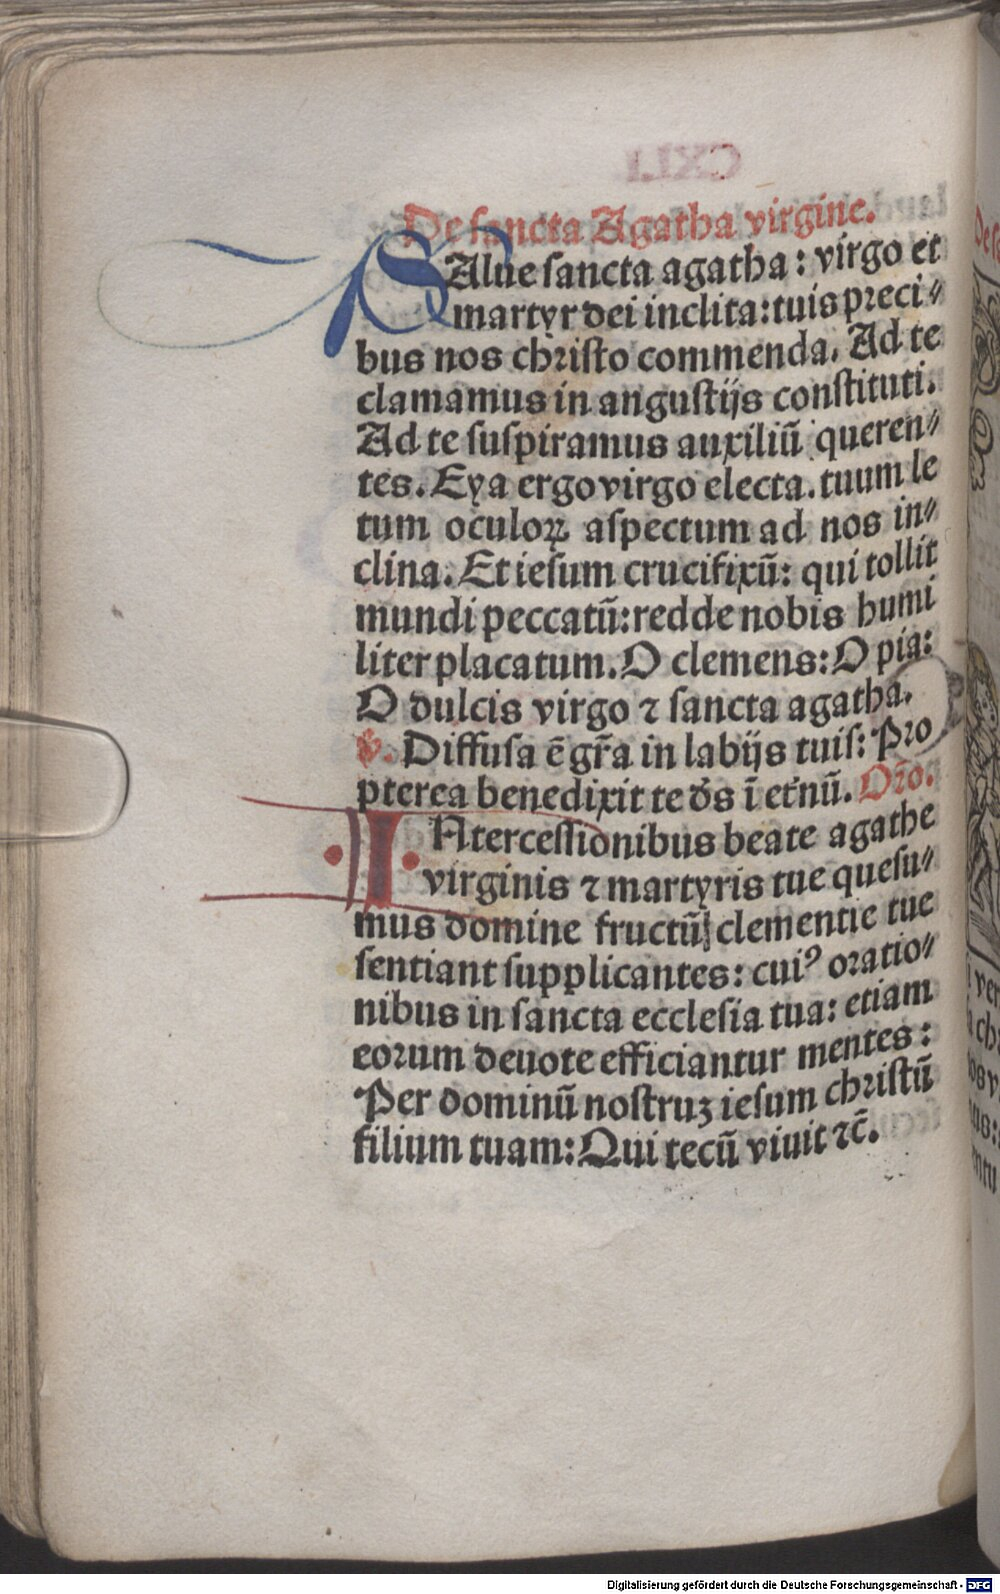 De sancta Agatha virgine.
SAlue sancta agatha: virgo et
martyr dei inclita: tuis preci⸗
bus nos christo commenda. Ad te
clamamus in angustijs constituti.
Ad te suspiramus auxiliū queren⸗
tes. Eya ergo virgo electa. tuum le
tum oculoꝝ aspectum ad nos in⸗
clina. Et iesum crucifixū: qui tollit
mundi peccatū: redde nobis humi
liter placatum. O clemens: O pia:
O dulcis virgo ⁊ sancta agatha.
℣. Diffusa ē gr̄a in labijs tuis: Pro
pterea benedixit te de᷒s ī eternū. Oro.
INtercessionibus beate agathe
virginis ⁊ martyris tue quesu⸗
mus domine fructū clementie tue
sentiant supplicantes: cui⁹ oratio⸗
nibus in sancta ecclesia tua: etiam
eorum deuote efficiantur mentes:
Per dominū nostruz iesum christū
filium tuam: Qui tecū viuit ⁊c̄.
Digitalisierung gefördert durch die Deutsche Forschungsgemeinschaft - DFG